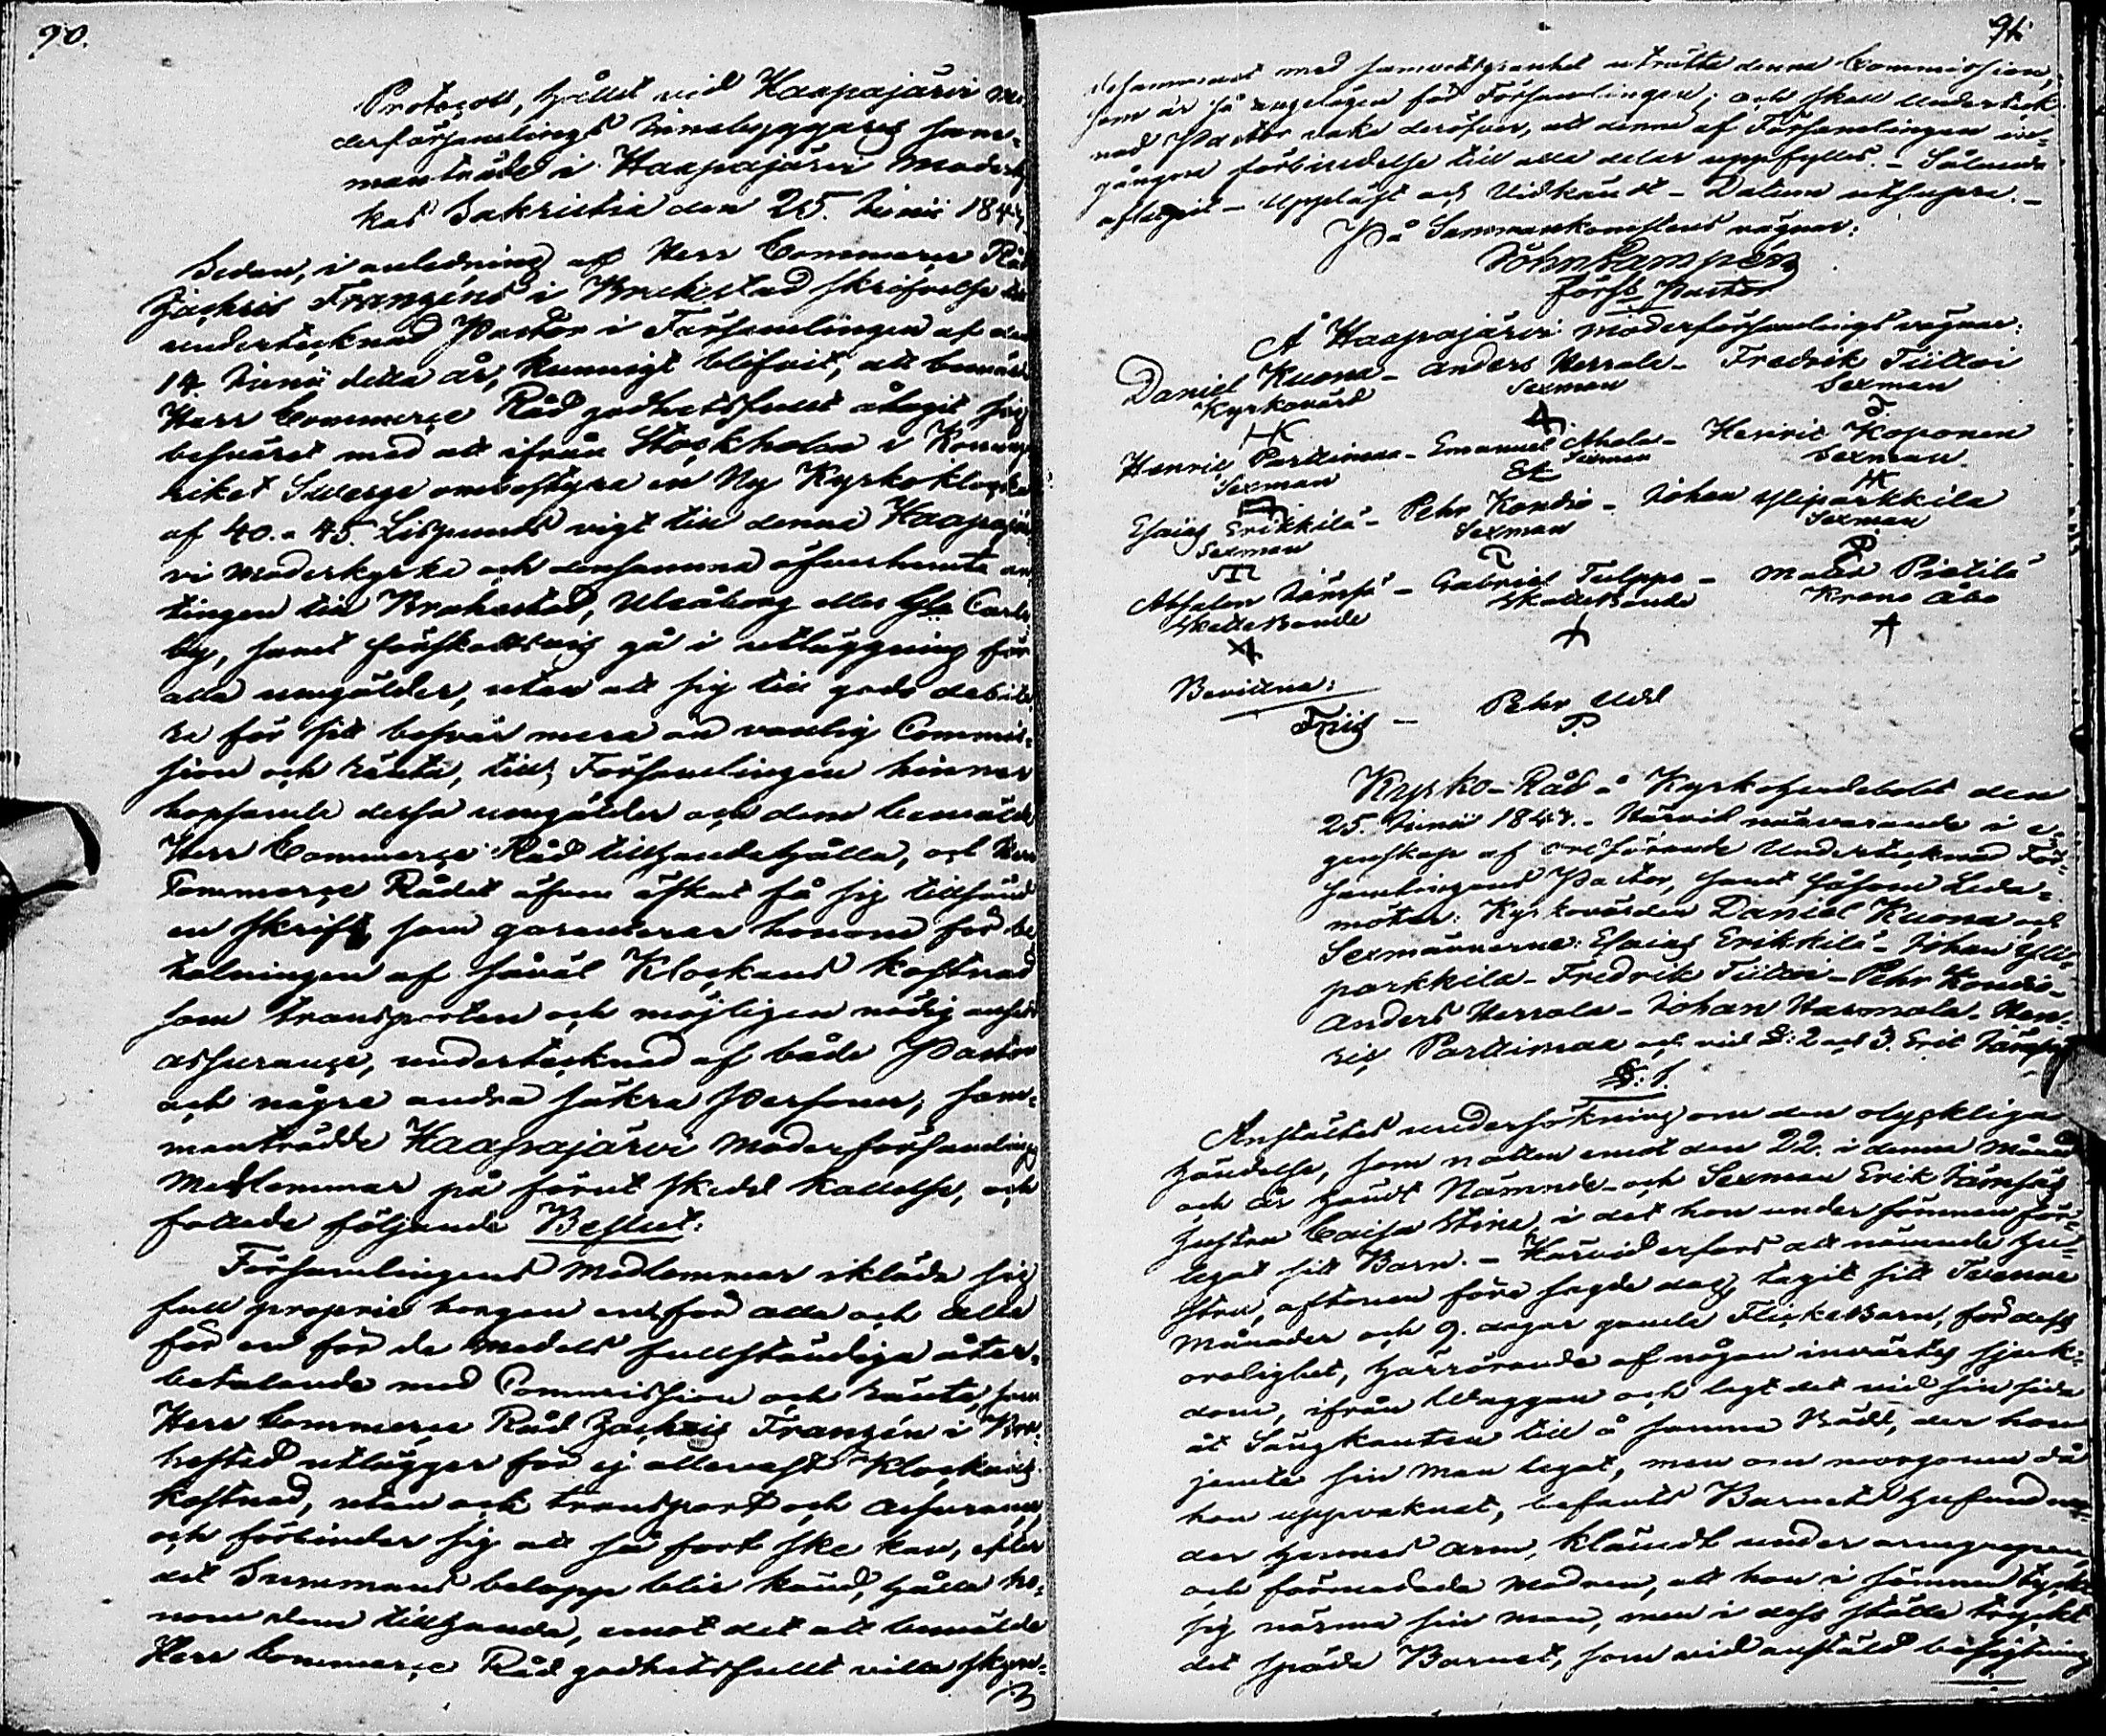 90.
Protocoll, hållet vid Haapajärvi mo-
derförsamlings Innebyggares sam-
manträde i Haapajärvi Moderkyr-
kas Sakristia den 25. Junii 1847.
Sedan, i anledning af Herr Commerce Råd
Zachris Franzéns i Brahestad skrifvelse till
undertecknad Pastor i Församlingen af den
14 Junii detta år, kunnigt blifvit, att bemälde
Herr Commerce Råd godhetsfullt åtagit sig
besväret med att ifrån Stockholm i Konunga
riket Swerge ombestyra en Ny Kyrkoklocka
af 40. a 45. Lispunds vigt till denna Haapajär-
vi Moderkyrka och densamma öfverhemta an-
tingen till Brahestad, Uleåborg eller Gla Carle-
by, samt förskottsvis gå i utläggning för
alla umgälder, utan att sig till godo debite-
ra för sitt besvär mera än vanlig Commis-
sion och ränta, tills Församlingen hinner
hopsamla dessa umgälder och dem bemälde
Herr Commerce Råd tillhandahålla, och Herr
Commerce Rådet äfven äskat få sig tillsänd
en skrift, som garanterar honom för be-
talningen af såväl Klockans kostnad
som transporten och möjligen nödig ansedd
assurance, undertecknad af både Pastor
och några andra säkra Personer; sam-
manträdde Haapajärvi Moderförsamlings
Medlemmar på förut skedd kallelse, och
fattade följande Beslut:
Församlingens Medlemmar ikläda sig
full proprie borgen en för alla och alla
för en för de medels fullständiga åter-
betalande med Commission och ränta, som
Herr Commerce Råd Zachris Franzén i Bra-
hestad utlägger för ej allenast Klockans
kostnad, utan ock transport och Assurance,
och förbinder sig att så fort ske kan, efter
det Summans belopp blir känd, hålla ho-
nom dem tillhanda, emot det att bemälde
Herr Commerce Råd godhetsfullt ville skyn-
91.
desammast med samvetsgranhet uträtta denna Commission,
som är så angelägen för Församlingen; och skall Underteck-
nad Pastor vaka deröfver, att denne af Församlingen in-
gångne förbindelse till alla delar uppfylles. - Sålunda
aflupit - Uppläst och Vidkändt - Datum utsupra. -
På Sammankomstens vägnar:
Johan Lampén
Förste Pastor
Å Haapajärvi moderförsamlings vägnar:
Daniel Kuona - Anders Herrala - Fredrik Tiitto
Kyrkovärd Sexman Sexman
Henric Parttimaa - Emanuel Ahola - Henric Koponen
Sexman Sexman Sexman
Esaias Erikkilä - Pehr Kontio - Johan Yliparkkila
Sexman Sexman Sexman
Absalon Jämsä - Gabriel Tulppo - Matts Pietilä
SkatteBonde SkatteBonde Krono Åbo
Bevittna:
Friis - Pehr Udd
P.
Kyrko-Råd å Kyrkoherdebolet den
25. Junii 1847. - Härvid närvarande i e-
genskap af ordförande Undertecknad För-
samlingens Pastor, samt såsom Leda-
möter: Kyrkovärden Daniel Kuona och
Sexmännerne: Esaias Erikkilä - Johan Yli-
parkkila - Fredrik Tiitto - Pehr Kontio -
Anders Herrala - Johan Harmala - Hen-
ric Parttimaa och vid §: 2 och 3. Eric Jämsä
§: 1.
Anställtes undersökning om den olyckliga
händelse, som natten emot den 22. i denna Månad
och år händt Nämnde- och Sexman Erik Jämsäs
hustru Caisa Stina, i det hon under sömnen för-
legat sitt Barn. - Härvid erfors att nämnde hu-
stru, aftonen före sagde dag, tagit sitt Tvenne
Månader och 9. dagar gamla FlickeBarn, för dess
orolighet, härrörande af någon invärtes sjuk-
dom, ifrån Waggan och lagt det vid sin sida
åt Sängkanten till å samma Bädd, der hon
jemte sin Man legat, men om morgonen då
hon uppvaknat, befants Barnets hufvud un-
der hennes arm, klämdt under armgropen,
och förmodade Modren, att hon i sömnen tyckt
sig närma sin man, men i dess ställe tryckt
det späda Barnet, som vid anställd besigtning